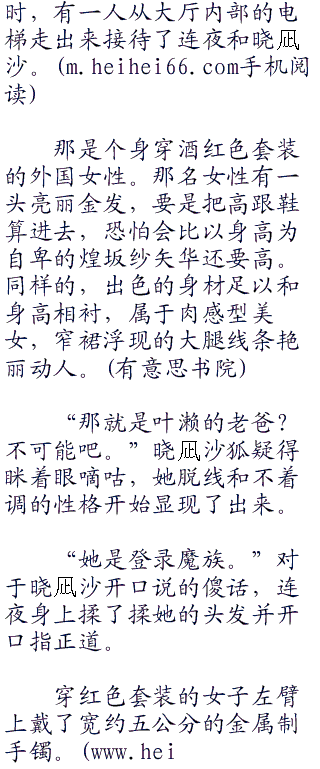 时,有一人从大厅内部的电
梯走出来接待了连夜和晓凪
沙。(m.heihei66.com手机阅
读)
那是个身穿酒红色套装
的外国女性。那名女性有一
头亮丽金发,要是把高跟鞋
算进去,恐怕会比以身高为
自卑的煌坂纱矢华还要高。
同样的,出色的身材足以和
身高相衬,属于肉感型美
女,窄裙浮现的大腿线条艳
丽动人。(有意思书院)
“那就是叶濑的老爸?
不可能吧。”晓凪沙狐疑得
眯着眼嘀咕,她脱线和不着
调的性格开始显现了出来。
“她是登录魔族。”对
于晓凪沙开口说的傻话,连
夜身上揉了揉她的头发并开
口指正道。
穿红色套装的女子左臂
上戴了宽约五公分的金属制
手镯。(www.hei